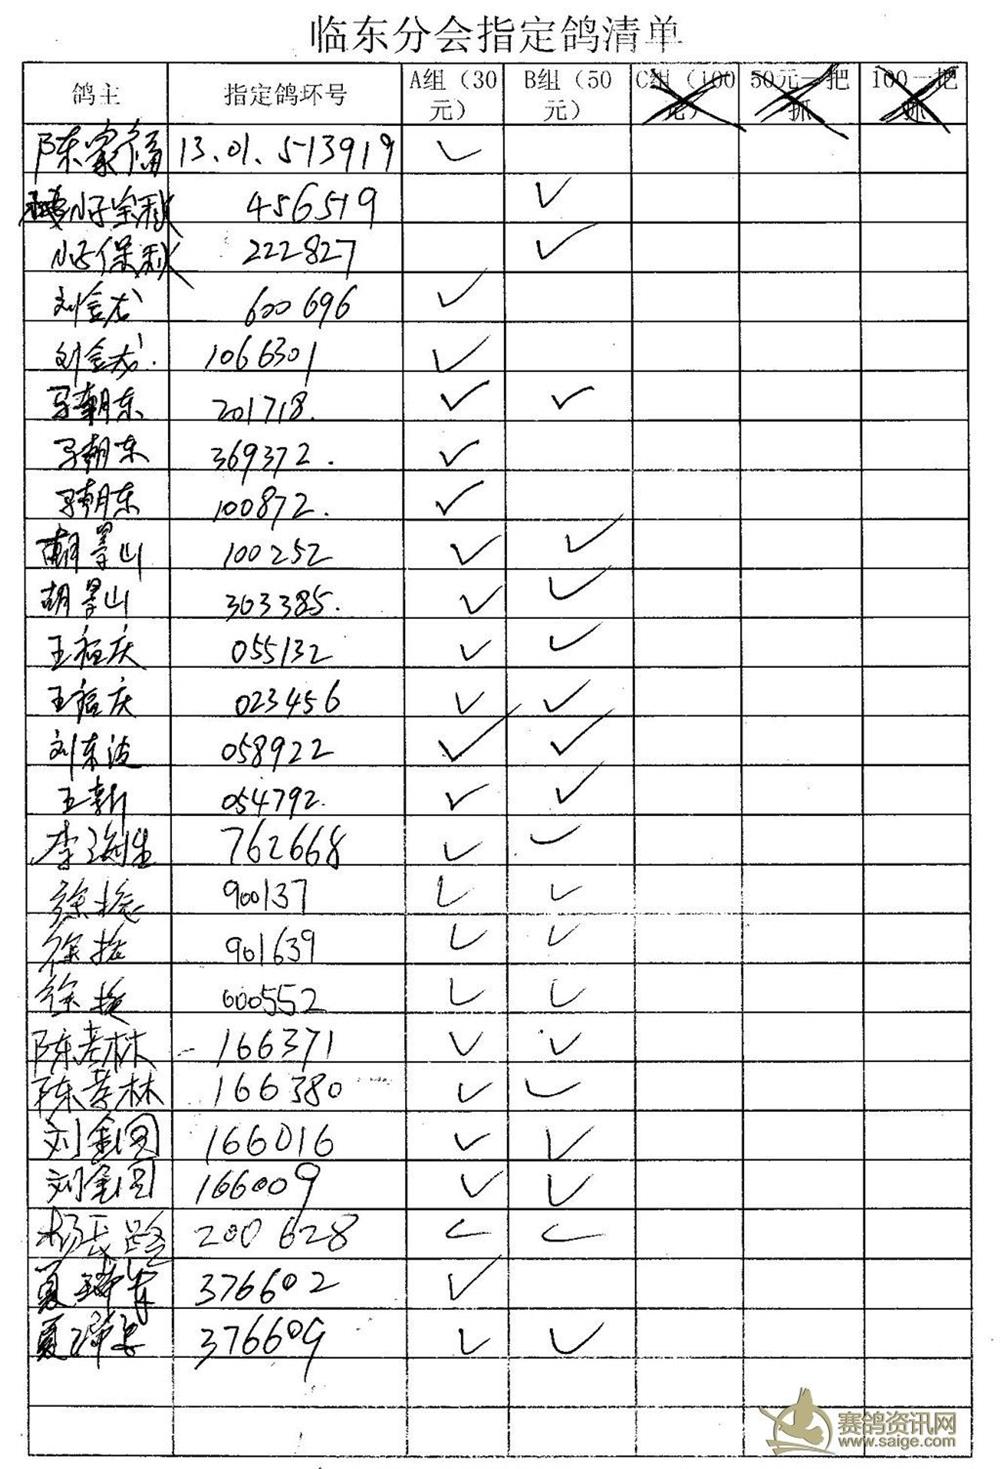 临东分会指定鸽清单
鸽主 指定鸽环号 A组（30元） B组（50元） C组（100元） 50元一把抓 100一把抓
陈家福 13.01.513919 ✓
456519 ✓
保秋 222827 ✓
刘金龙 600696 ✓
刘金龙. 1066301 ✓
马朝东 201718. ✓ ✓
马朝东 369372. ✓
马朝东 100872. ✓
胡景山 100252 ✓ ✓
胡景山 303385. ✓ ✓
王福庆 055132 ✓ ✓
王福庆 023456 ✓ ✓
刘东波 058922 ✓ ✓
王新 054792. ✓ ✓
李 生 762668 ✓ ✓
徐 900137 ✓ ✓
徐 901639 ✓ ✓
徐 000552 ✓ ✓
陈孝林 166371 ✓ ✓
陈孝林 166380 ✓ ✓
刘金圆 166016 ✓ ✓
刘金圆 166009 ✓ ✓
杨 路 200628 ✓ ✓
夏 376602 ✓
夏 376609 ✓ ✓
赛鸽资讯网
www.saige.com